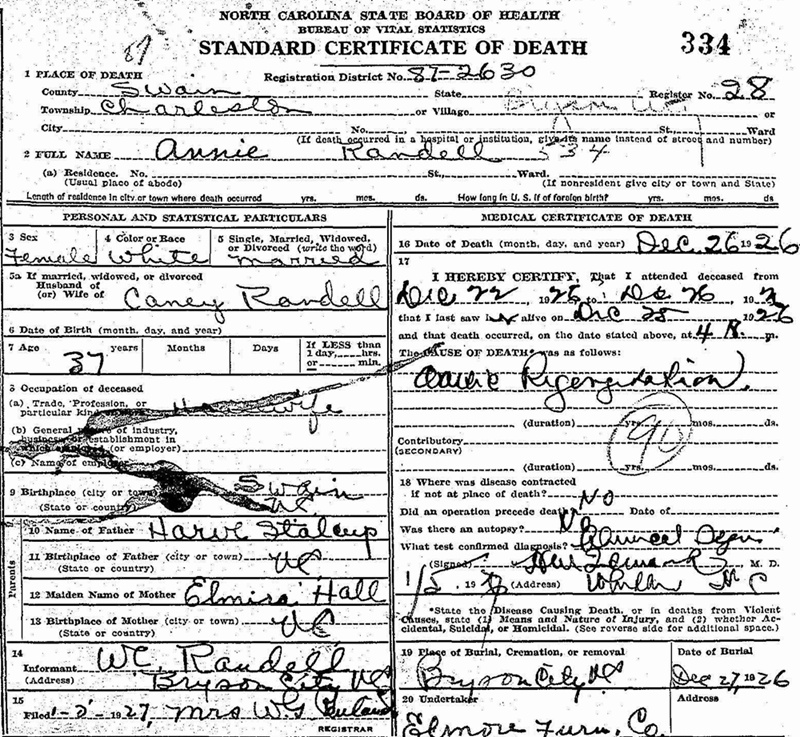 NORTH CAROLINA STATE BOARD OF HEALTH
BUREAU OF VITAL STATISTICS
STANDARD CERTIFICATE OF DEATH
334
87
1 PLACE OF DEATH
Registration District No. 87-2630
County Swain State Register No. 28
Township Charleston or Village Bryson or
City No. St., Ward
(If death occurred in a hospital or institution, give its name instead of street and number)
2 FULL NAME Annie Randell 534
(a) Residence. No. St., Ward.
(Usual place of abode) (If nonresident give city or town and State)
Length of residence in city or town where death occurred yrs. mos. ds. How long in U. S. if of foreign birth? yrs. mos. ds.
PERSONAL AND STATISTICAL PARTICULARS
3 Sex 4 Color or Race 5 Single, Married, Widowed, or Divorced (write the word)
Female White Married
5a If married, widowed, or divorced
Husband of
(or) Wife of Caney Randell
6 Date of Birth (month, day, and year)
7 Age years Months Days If LESS than
1 day, hrs.
or min.
37
8 Occupation of deceased
(a) Trade, Profession, or
particular kind Housewife
(b) General nature of industry,
business or establishment in
which employed (or employer)
(c) Name of employer
9 Birthplace (city or town) Swain
(State or country) NC
Parents
10 Name of Father Harve Stalcup
11 Birthplace of Father (city or town)
(State or country) NC
12 Maiden Name of Mother Elmira Hall
13 Birthplace of Mother (city or town)
(State or country) NC
14
Informant W.C. Randell
(Address) Bryson City NC
15
Filed 1-5-1927, Mrs W.T.
REGISTRAR
MEDICAL CERTIFICATE OF DEATH
16 Date of Death (month, day, and year) Dec. 26 1926
17
I HEREBY CERTIFY, That I attended deceased from
Dec 22, 1926 to Dec 26, 192
that I last saw alive on Dec 25, 1926
and that death occurred, on the date stated above, at 4 m.
The CAUSE OF DEATH was as follows:
(duration) yrs. mos. ds.
90
Contributory
(SECONDARY)
(duration) yrs. mos. ds.
18 Where was disease contracted
if not at place of death? NO
Did an operation precede death? Date of
Was there an autopsy? No
What test confirmed diagnosis?
(Signed) M. D.
1/5 19 (Address) NC
*State the Disease Causing Death, or in deaths from Violent
Causes, state (1) Means and Nature of Injury, and (2) whether Ac-
cidental, Suicidal, or Homicidal. (See reverse side for additional space.)
19 Place of Burial, Cremation, or removal Date of Burial
Bryson City NC Dec 27, 1926
20 Undertaker Address
Elmore Furn. Co.